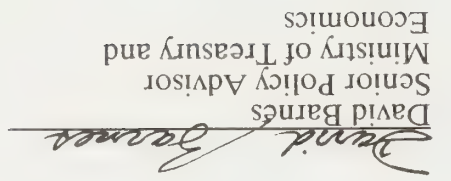 David Barnes
David Barnes
Senior Policy Advisor
Ministry of Treasury and
Economics